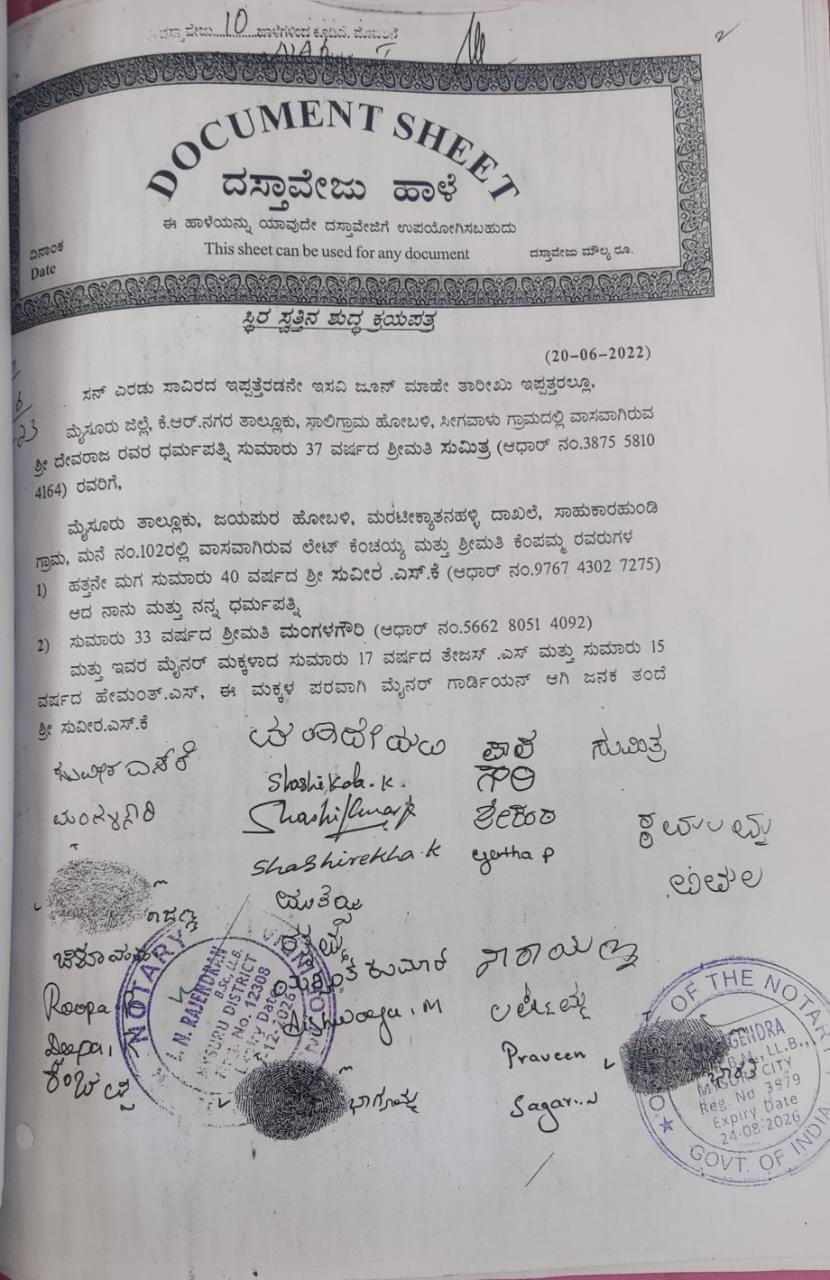 ದಸ್ತಾವೇಜು 10 ಹಾಳೆಗಳಿಂದ ಕೂಡಿದೆ.
2
DOCUMENT SHEET
ದಸ್ತಾವೇಜು ಹಾಳೆ
ಈ ಹಾಳೆಯನ್ನು ಯಾವುದೇ ದಸ್ತಾವೇಜಿಗೆ ಉಪಯೋಗಿಸಬಹುದು
This sheet can be used for any document
ದಸ್ತಾವೇಜು ಮೌಲ್ಯ ರೂ.
ದಿನಾಂಕ
Date
ಸ್ಥಿರ ಸ್ವತ್ತಿನ ಶುದ್ಧ ಕ್ರಯಪತ್ರ
(20-06-2022)
ಸನ್ ಎರಡು ಸಾವಿರದ ಇಪ್ಪತ್ತೆರಡನೇ ಇಸವಿ ಜೂನ್ ಮಾಹೇ ತಾರೀಖು ಇಪ್ಪತ್ತರಲ್ಲೂ,
ಮೈಸೂರು ಜಿಲ್ಲೆ, ಕೆ.ಆರ್.ನಗರ ತಾಲ್ಲೂಕು, ಸಾಲಿಗ್ರಾಮ ಹೋಬಳಿ, ಸೀಗವಾಳು ಗ್ರಾಮದಲ್ಲಿ ವಾಸವಾಗಿರುವ
ಶ್ರೀ ದೇವರಾಜ ರವರ ಧರ್ಮಪತ್ನಿ ಸುಮಾರು 37 ವರ್ಷದ ಶ್ರೀಮತಿ ಸುಮಿತ್ರ (ಆಧಾರ್ ನಂ.3875 5810
4164) ರವರಿಗೆ,
ಮೈಸೂರು ತಾಲ್ಲೂಕು, ಜಯಪುರ ಹೋಬಳಿ, ಮರಟೀಕ್ಯಾತನಹಳ್ಳಿ ದಾಖಲೆ, ಸಾಹುಕಾರಹುಂಡಿ
ಗ್ರಾಮ, ಮನೆ ನಂ.102ರಲ್ಲಿ ವಾಸವಾಗಿರುವ ಲೇಟ್ ಕೆಂಚಯ್ಯ ಮತ್ತು ಶ್ರೀಮತಿ ಕೆಂಪಮ್ಮ ರವರುಗಳ
1) ಹತ್ತನೇ ಮಗ ಸುಮಾರು 40 ವರ್ಷದ ಶ್ರೀ ಸುವೀರ .ಎಸ್.ಕೆ (ಆಧಾರ್ ನಂ.9767 4302 7275)
ಆದ ನಾನು ಮತ್ತು ನನ್ನ ಧರ್ಮಪತ್ನಿ
2) ಸುಮಾರು 33 ವರ್ಷದ ಶ್ರೀಮತಿ ಮಂಗಳಗೌರಿ (ಆಧಾರ್ ನಂ.5662 8051 4092)
ಮತ್ತು ಇವರ ಮೈನರ್ ಮಕ್ಕಳಾದ ಸುಮಾರು 17 ವರ್ಷದ ತೇಜಸ್ .ಎಸ್ ಮತ್ತು ಸುಮಾರು 15
ವರ್ಷದ ಹೇಮಂತ್.ಎಸ್, ಈ ಮಕ್ಕಳ ಪರವಾಗಿ ಮೈನರ್ ಗಾರ್ಡಿಯನ್ ಆಗಿ ಜನಕ ತಂದೆ
ಶ್ರೀ ಸುವೀರ.ಎಸ್.ಕೆ
ಸುವೀರ ಎಸ್ ಕೆ
ಸುಮಿತ್ರ
Shashikala.K.
ಗೌರಿ
Shashikumar
Shashirekha.K
geetha P
Roopa
Deepa
Aishwarya.M
Praveen
Sagar.N
NOTARY
N. RAJENDRAN
B.Sc., LL.B.
MYSURU DISTRICT
Reg. No. 12308
Expiry Date
-12-2026
OF THE NOTARY
NAGENDRA
LL.B.,
MYSURU CITY
Reg. No 3979
Expiry Date
24-08-2026
GOVT. OF INDIA